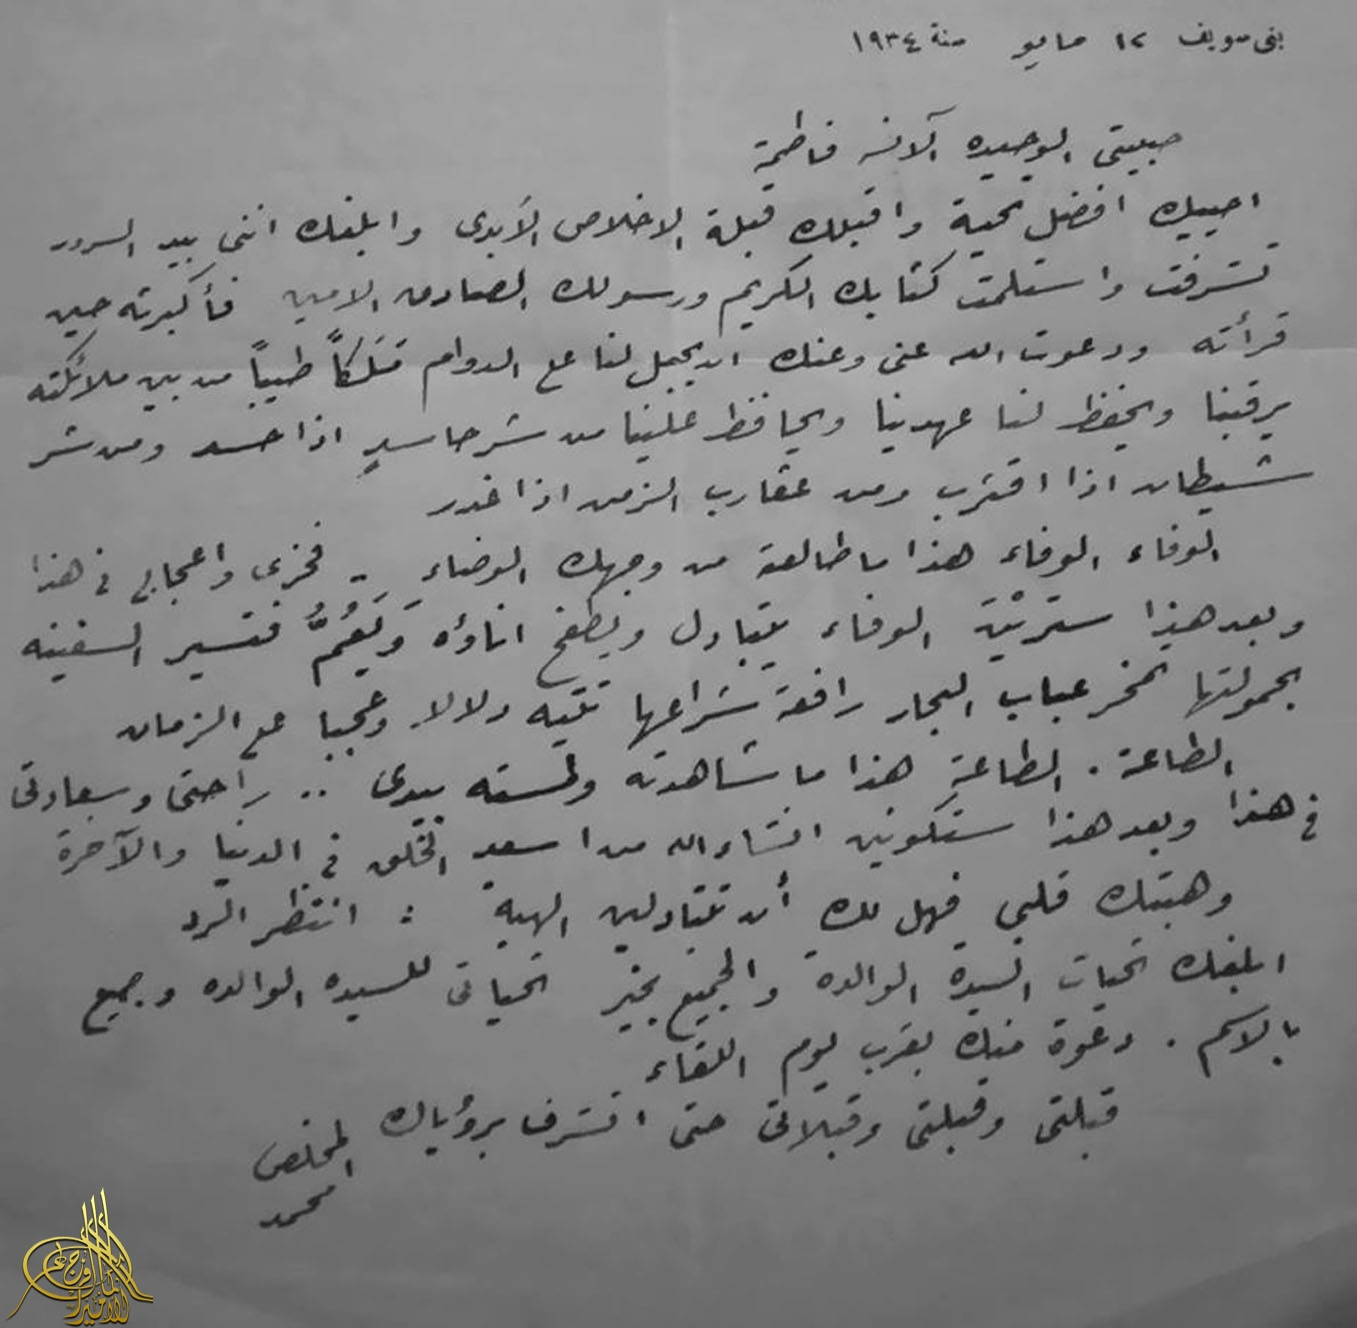 بنى سويف ١٢ مايو سنة ١٩٣٤
حبيبتى الوحيده الآنسه فاطمة
احييك افضل تحية واقبلك قبلة الاخلاص الأبدى وابلغك اننى بيد السرور
تشرفت واستلمت كتابك الكريم ورسولك الصادق الامين فأكبرته حين
قرأته ودعوت الله عنى وعنك ان يجعل لنا على الدوام مَلَكاً طيباً من بين ملائكته
يرقبنا ويحفظ لنا عهدينا ويحافظ علينا من شر حاسدٍ اذا حسد ومن شر
شيطان اذا اقترب ومن عقارب الزمن اذا غدر
الوفاء الوفاء هذا ما طالعة من وجهك الوضاء .. فخرى واعجابى فى هذا
وبعد هذا ستريْن الوفاء يتبادل ويطفح اناؤه وَيَعُمُّ فتسير السفينه
بحمولتها تمخر عباب البحار رافعة شراعها تتيه دلالا وعجبا مع الزمان
الطاعة . الطاعة هذا ما شاهدته ولمسته بيدى .. راحتى وسعادتى
فى هذا وبعد هذا ستكونين انشاء الله من اسعد الخلق فى الدنيا والآخرة
وهبتك قلبى فهل لك أن تتبادلين الهبه : انتظر الرد
ابلغك تحيات السيدة الوالدة والجميع بخير تحياتى للسيده الوالده وجميع
بالاسم . دعوة منك بقرب يوم اللقاء
قبلتى وقبلتى وقبلاتى حتى اتشرف برؤياك
المخلص
محمد